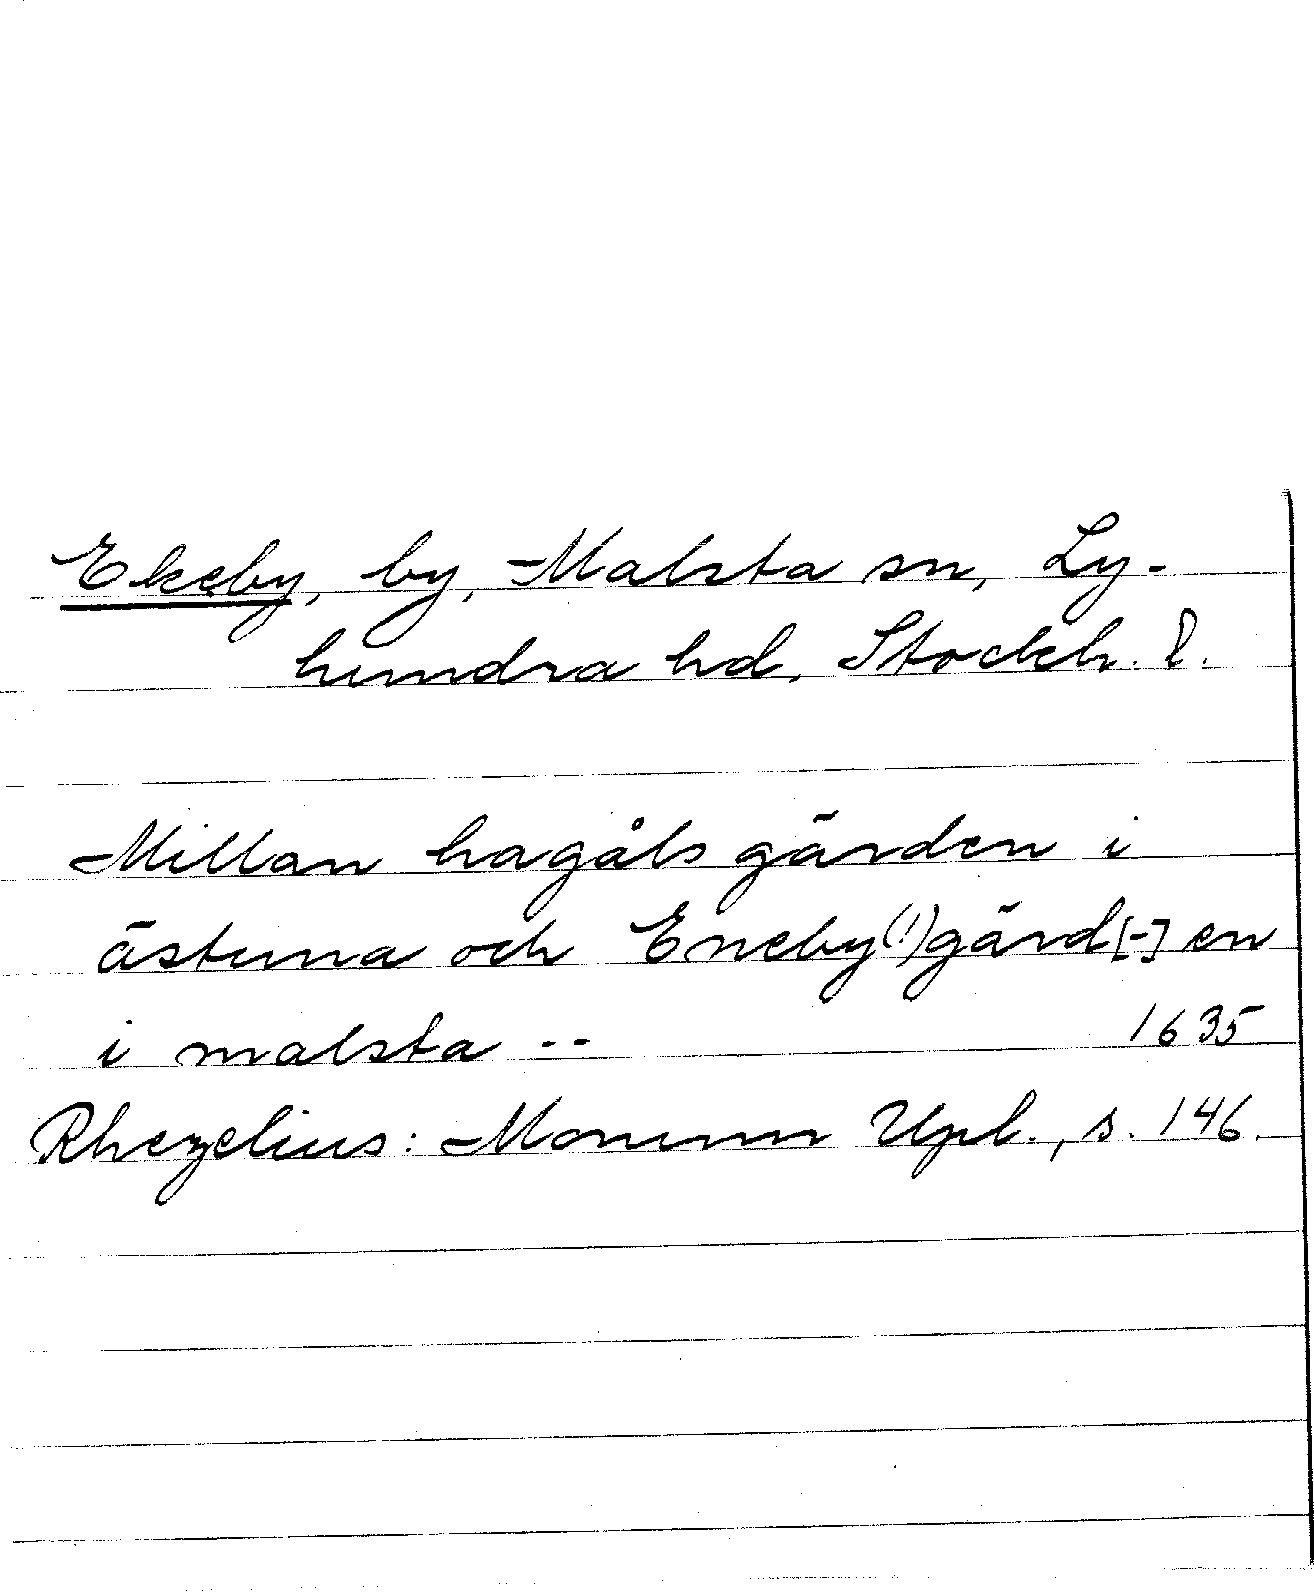 Ekeby, by, Malsta sn, Ly-
hundra hd, Stockh. l.
Millan hagåls gärden i
ästuna och Eneby(!)gärd[-]en
i malsta --
1635
Rhezelius: Monum Upl., s. 146.